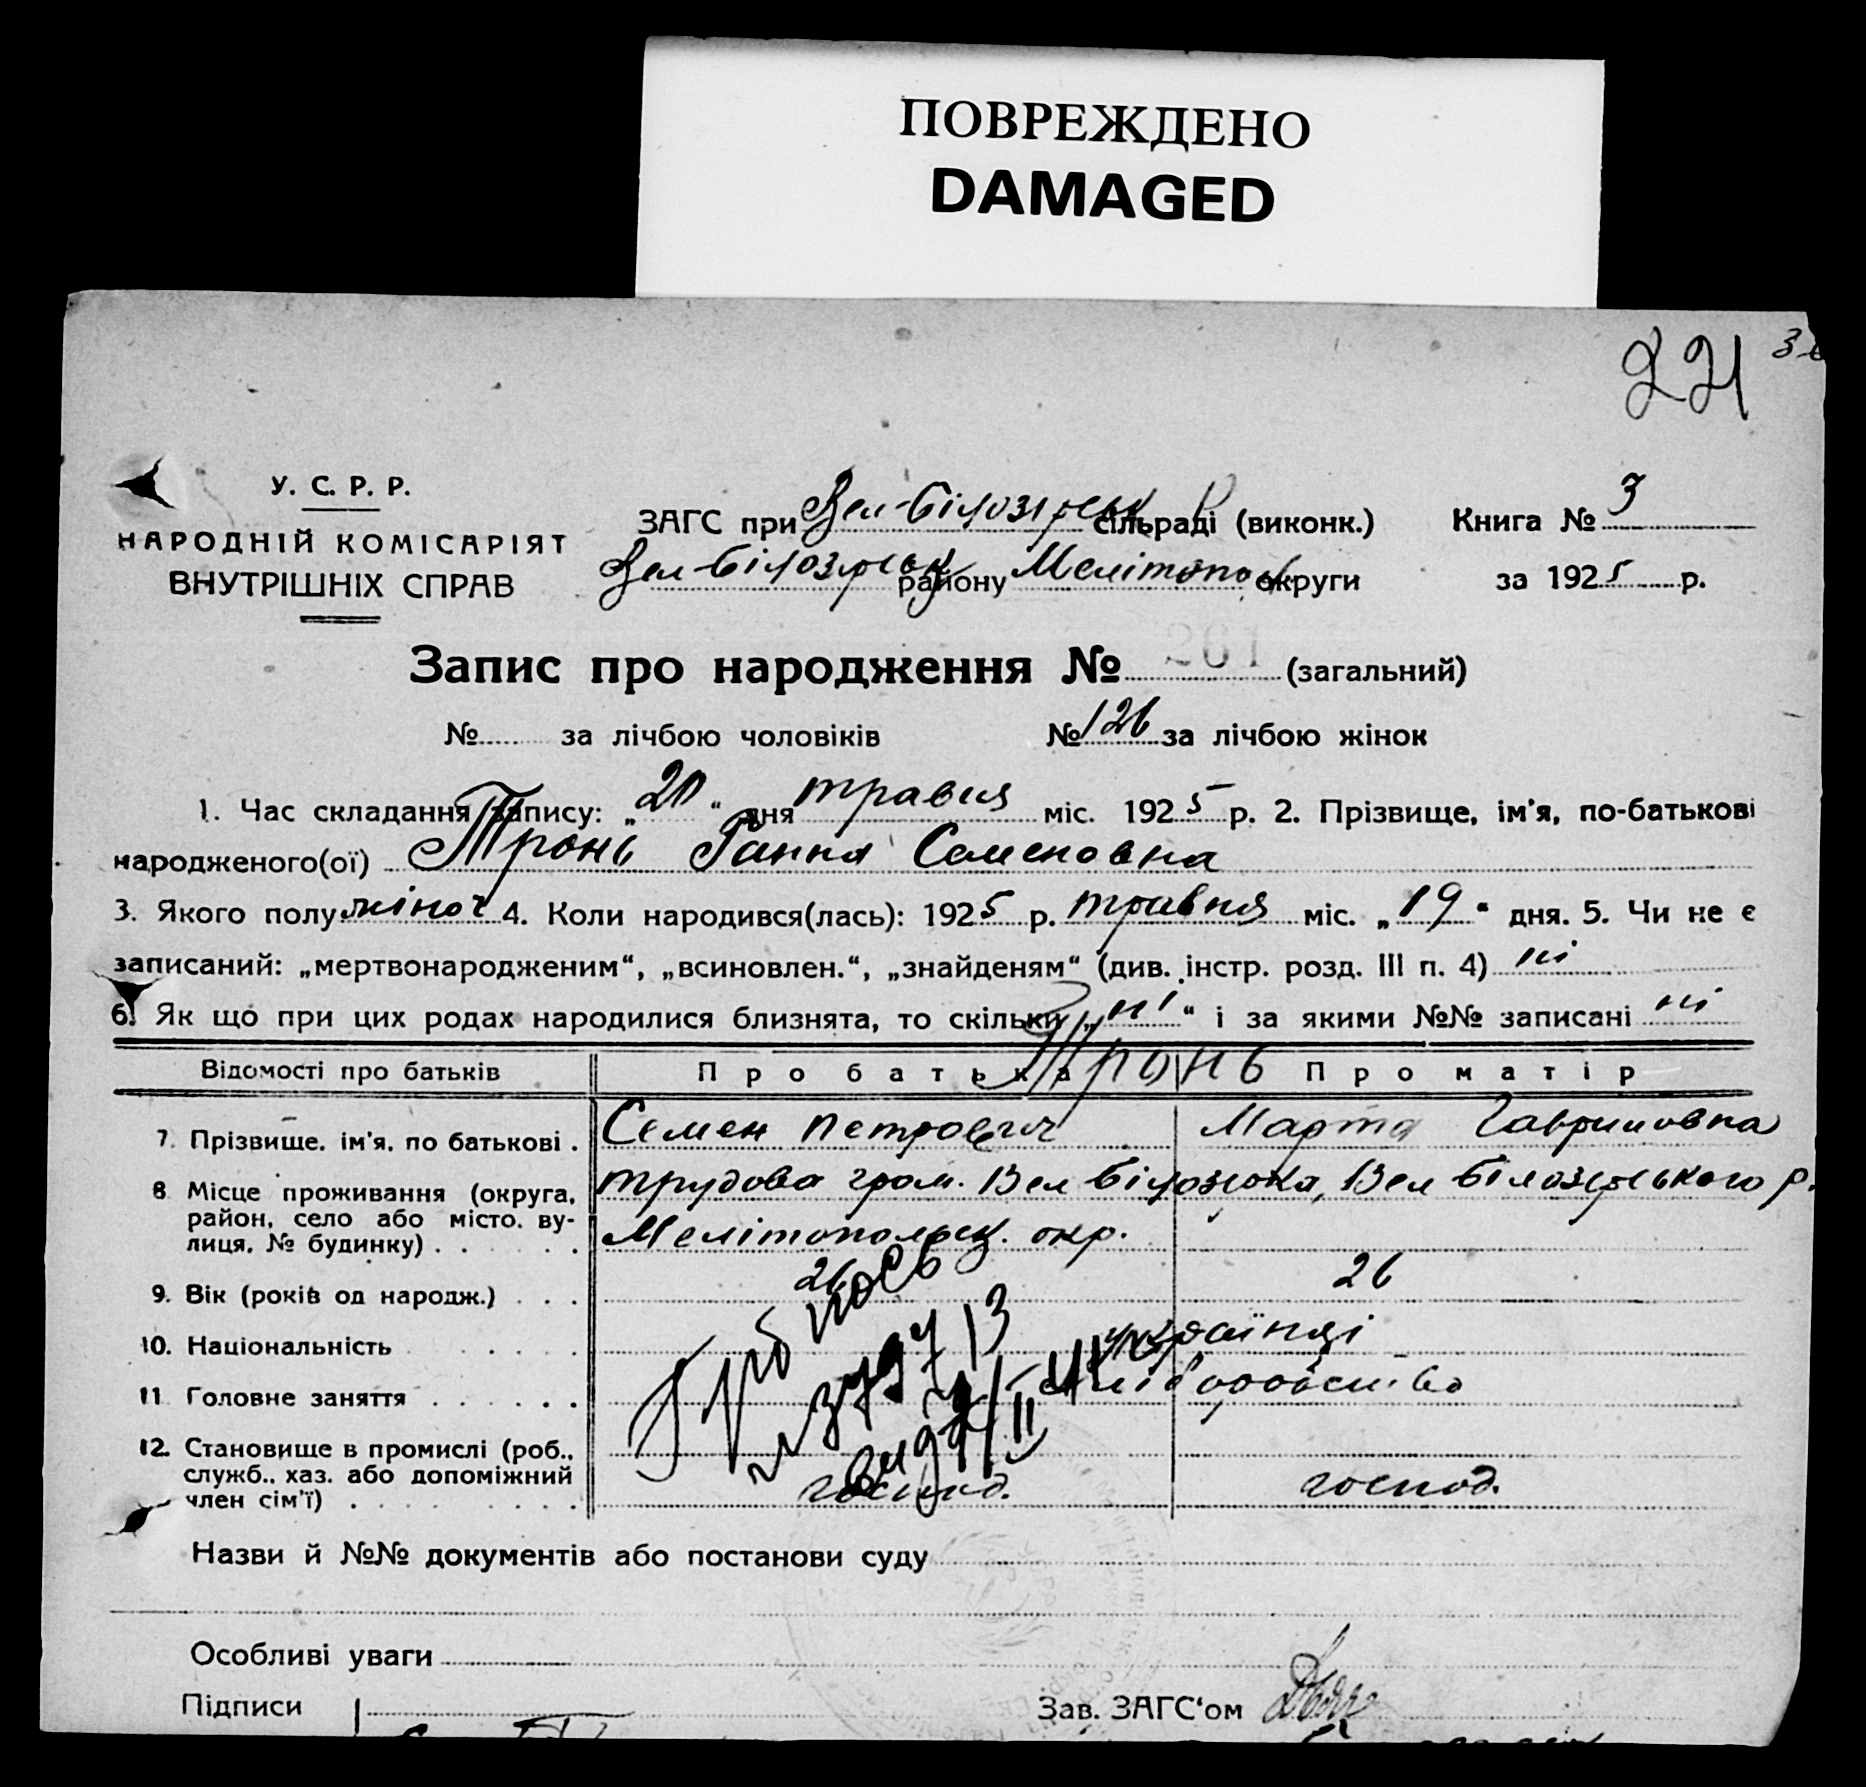 ПОВРЕЖДЕНО
DAMAGED
221
У. С. Р. Р.
НАРОДНІЙ КОМІСАРІЯТ
ВНУТРІШНІХ СПРАВ
ЗАГС при Вел-Білозірськ сільраді (виконк.)
Вел-Білозірськ району Мелітопол округи
Книга № 3
за 1925 р.
Запис про народження № 201 (загальний)
№ за лічбою чоловіків № 126 за лічбою жінок
1. Час складання запису: „20“ дня травня міс. 1925 р. 2. Прізвище, ім'я, по-батькові
народженого(ої) Тронь Ганна Семеновна
3. Якого полу жіноч 4. Коли народився(лась): 1925 р. травня міс. „19“ дня. 5. Чи не є
записаний: „мертвонародженим“, „всиновлен.“, „знайденям“ (див. інстр. розд. III п. 4) ні
6. Як що при цих родах народилися близнята, то скільки „ні“ і за якими №№ записані ні
Відомості про батьків Про батька Про матір
Тронь
7. Прізвище, ім'я, по батькові . Семен Петрович Марта Гавриловна
8. Місце проживання (округа, район, село або місто, ву-лиця, № будинку) . . . трудова гром. Вел Білозірка, Вел Білозірського р.
Мелітопольск. окр.
9. Вік (років од народж.) . . . 26 26
10. Національність . . . . українці
11. Головне заняття . . . . .
12. Становище в промислі (роб., служб., хаз. або допоміжний член сім'ї) . . . господ. господ.
Назви й №№ документів або постанови суду
Особливі уваги
Підписи
Зав. ЗАГС'ом